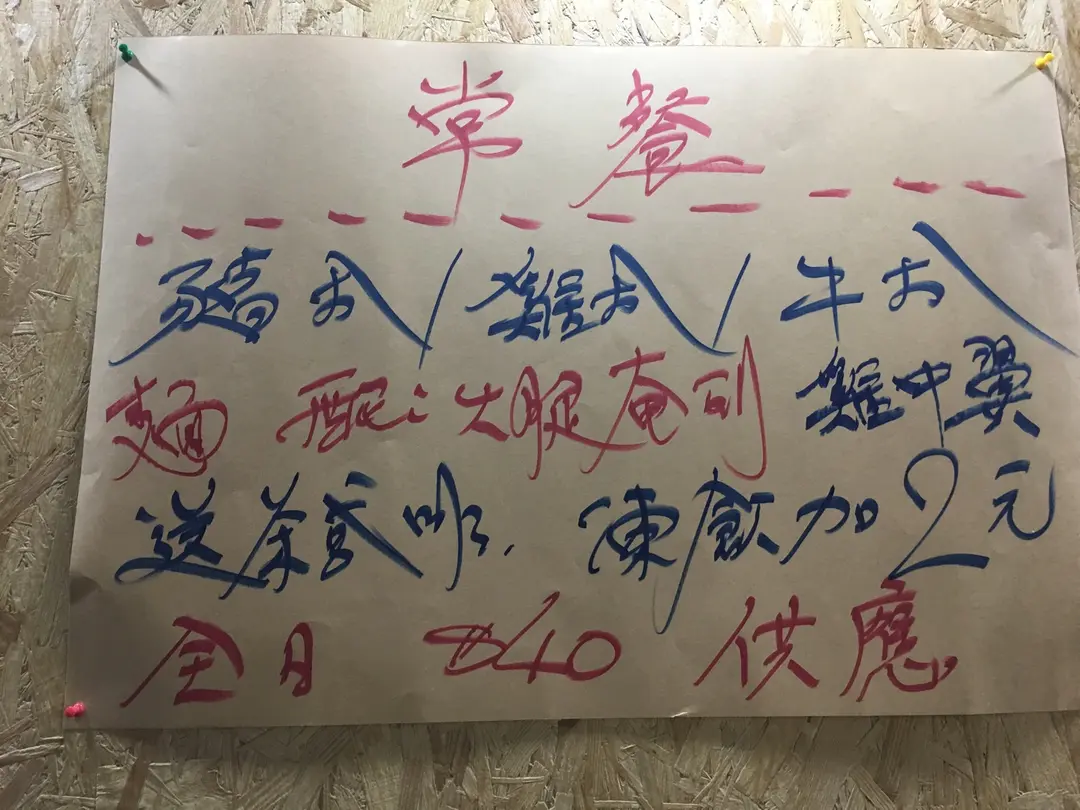 常餐
豬扒/雞扒/牛扒
麵 配: 火腿奄列 雞中翼
送茶或啡, 凍飲加2元
全日 $40 供應